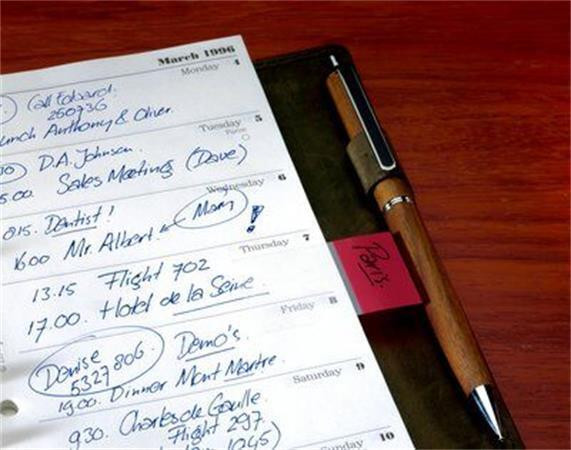 March 1996
Monday 4
Call Edward.
250736
Lunch Anthony & Oliver.
Tuesday 5
D.A. Johnson.
5.00. Sales Meeting (Dave)
Wednesday 6
815. Dentist!
1600 Mr. Albert. Mam !
Thursday 7
13.15 Flight 702
17.00. Hotel de la Seine
Paris.
Friday 8
Denise 5327806. Demo's.
1900. Dinner Mont Martre.
Saturday 9
930. Charles de Gaulle.
Flight 297.
1245)
Sunday 10